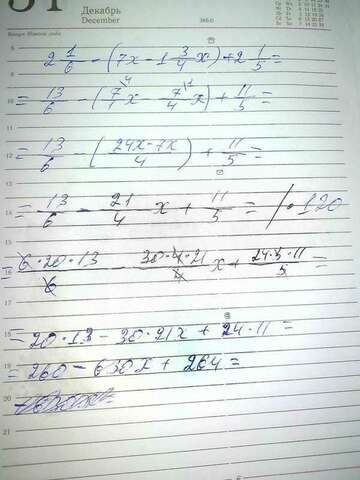 31 Декабрь
December 365.0
2 1/6 - (7x - 1 3/4 x) + 2 1/5 =
= 13/6 - (7/1 \4 x - 7/4 \1 x) + 11/5 =
= 13/6 - (24x - 7x / 4) + 11/5 =
= 13/6 - 21/4 x + 11/5 = / · 120
= 6·20·13/6 - 30·4·21/4 x + 24·5·11/5 =
= 20·13 - 30·21x + 24·11 =
= 260 - 630x + 264 =